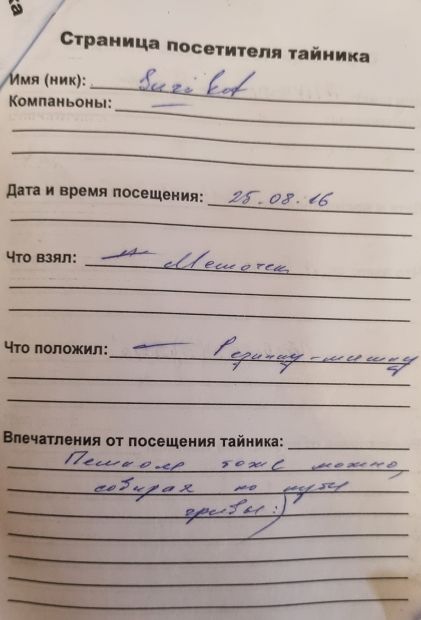 ка
Страница посетителя тайника
Имя (ник): Suri kot
Компаньоны: —
Дата и время посещения: 25.08.16
Что взял: Мешочек
Что положил: — Резинку-мишку
Впечатления от посещения тайника:
Пешком тоже можно,
собирая по пути
грибы :)